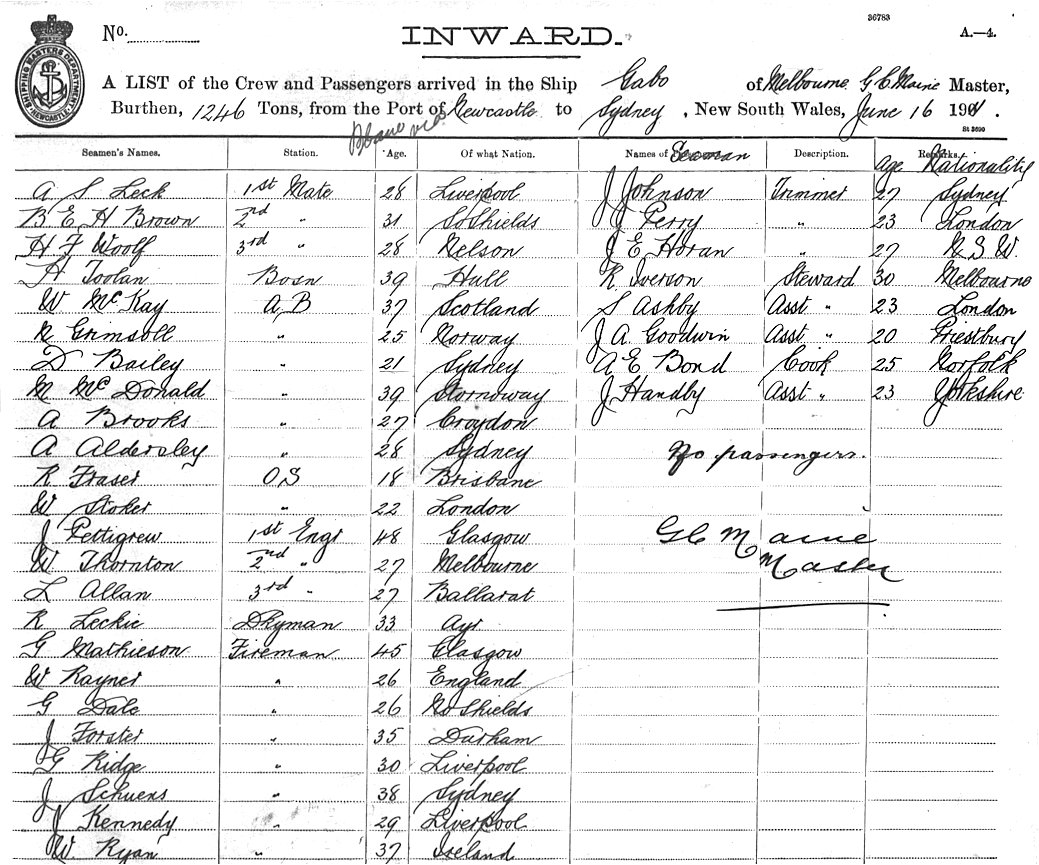 36783
No.
INWARD.
A.—4.
SHIPPING MASTERS DEPARTMENT
NEWCASTLE
A LIST of the Crew and Passengers arrived in the Ship Gabo of Melbourne G C Maine Master,
Burthen, 1246 Tons, from the Port of Newcastle to Sydney, New South Wales, June 16 1901.
St 3690
Seamen's Names. Station. Age. Of what Nation. Names of Seaman Description. Age Nationality
A S Leck 1st Mate 28 Liverpool J Johnson Trimmer 27 Sydney
B E H Brown 2nd " 31 So Shields J Perry " 23 London
H F Woolf 3rd " 28 Nelson J E Horan " 27 N S W.
H Toolan Bosn 39 Hull R Iverson Steward 30 Melbourne
W McKay A B 37 Scotland S Ashby Asst " 23 London
N Grimsoll " 25 Norway J A Goodwin Asst " 20
D Bailey " 21 Sydney A E Bond Cook 25 Norfolk
M McDonald " 39 Stornoway J Handby Asst " 23 Yorkshire
A Brooks " 27 Croydon
A Aldersley " 28 Sydney No passengers.
R Fraser O S 18 Brisbane
W Stoker " 22 London
J Pettigrew 1st Engr 48 Glasgow G C Maine
W Thornton 2nd " 27 Melbourne Master
L Allan 3rd " 27 Ballarat
R Leckie Dkyman 33 Ayr
G Mathieson Fireman 45 Glasgow
W Rayner " 26 England
G Dale " 26 No Shields
J Forster " 35 Durham
G Ridge " 30 Liverpool
J Schuens " 38 Sydney
J Kennedy " 29 Liverpool
W. Ryan " 37 Ireland